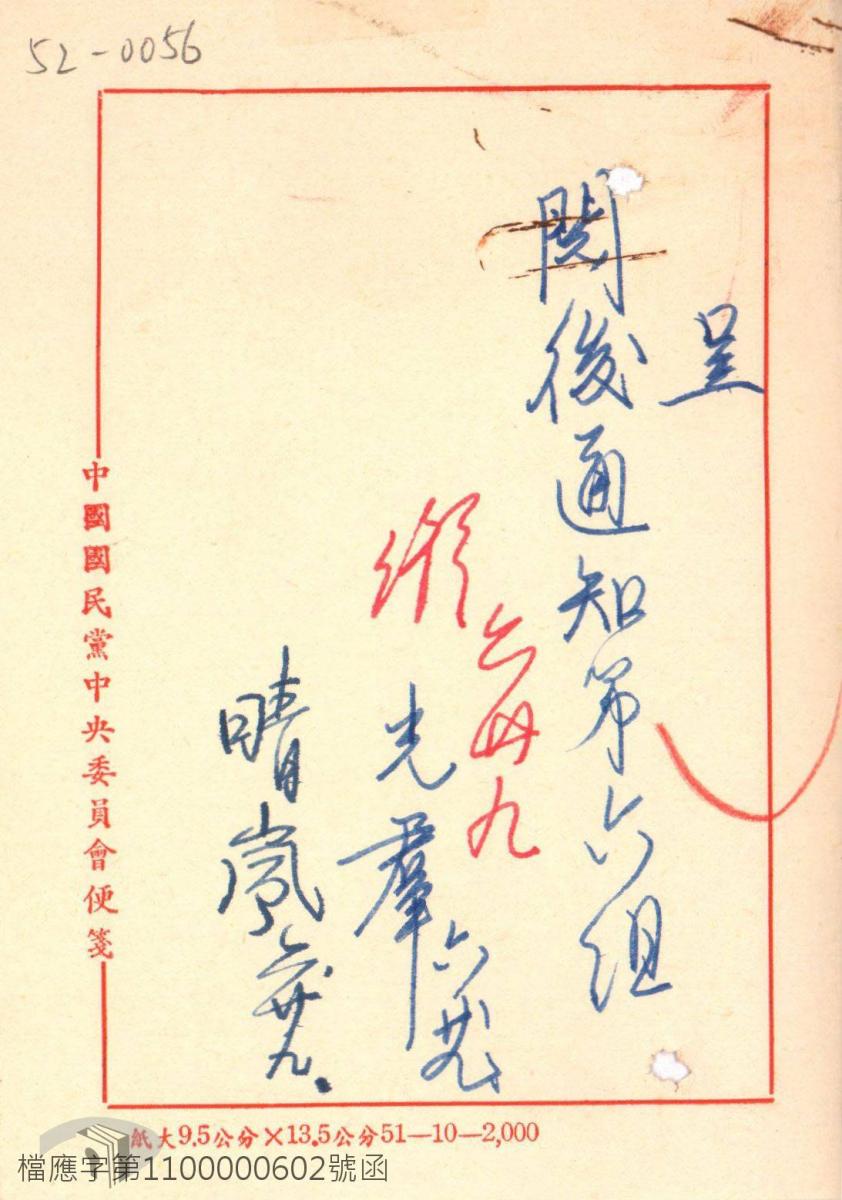 52-0056
呈
閱後通知第六組
六廿九
光羣 六廿九
晴嵐 六廿九
中國國民黨中央委員會便箋
紙大9.5公分×13.5公分51—10—2,000
檔應字第1100000602號函